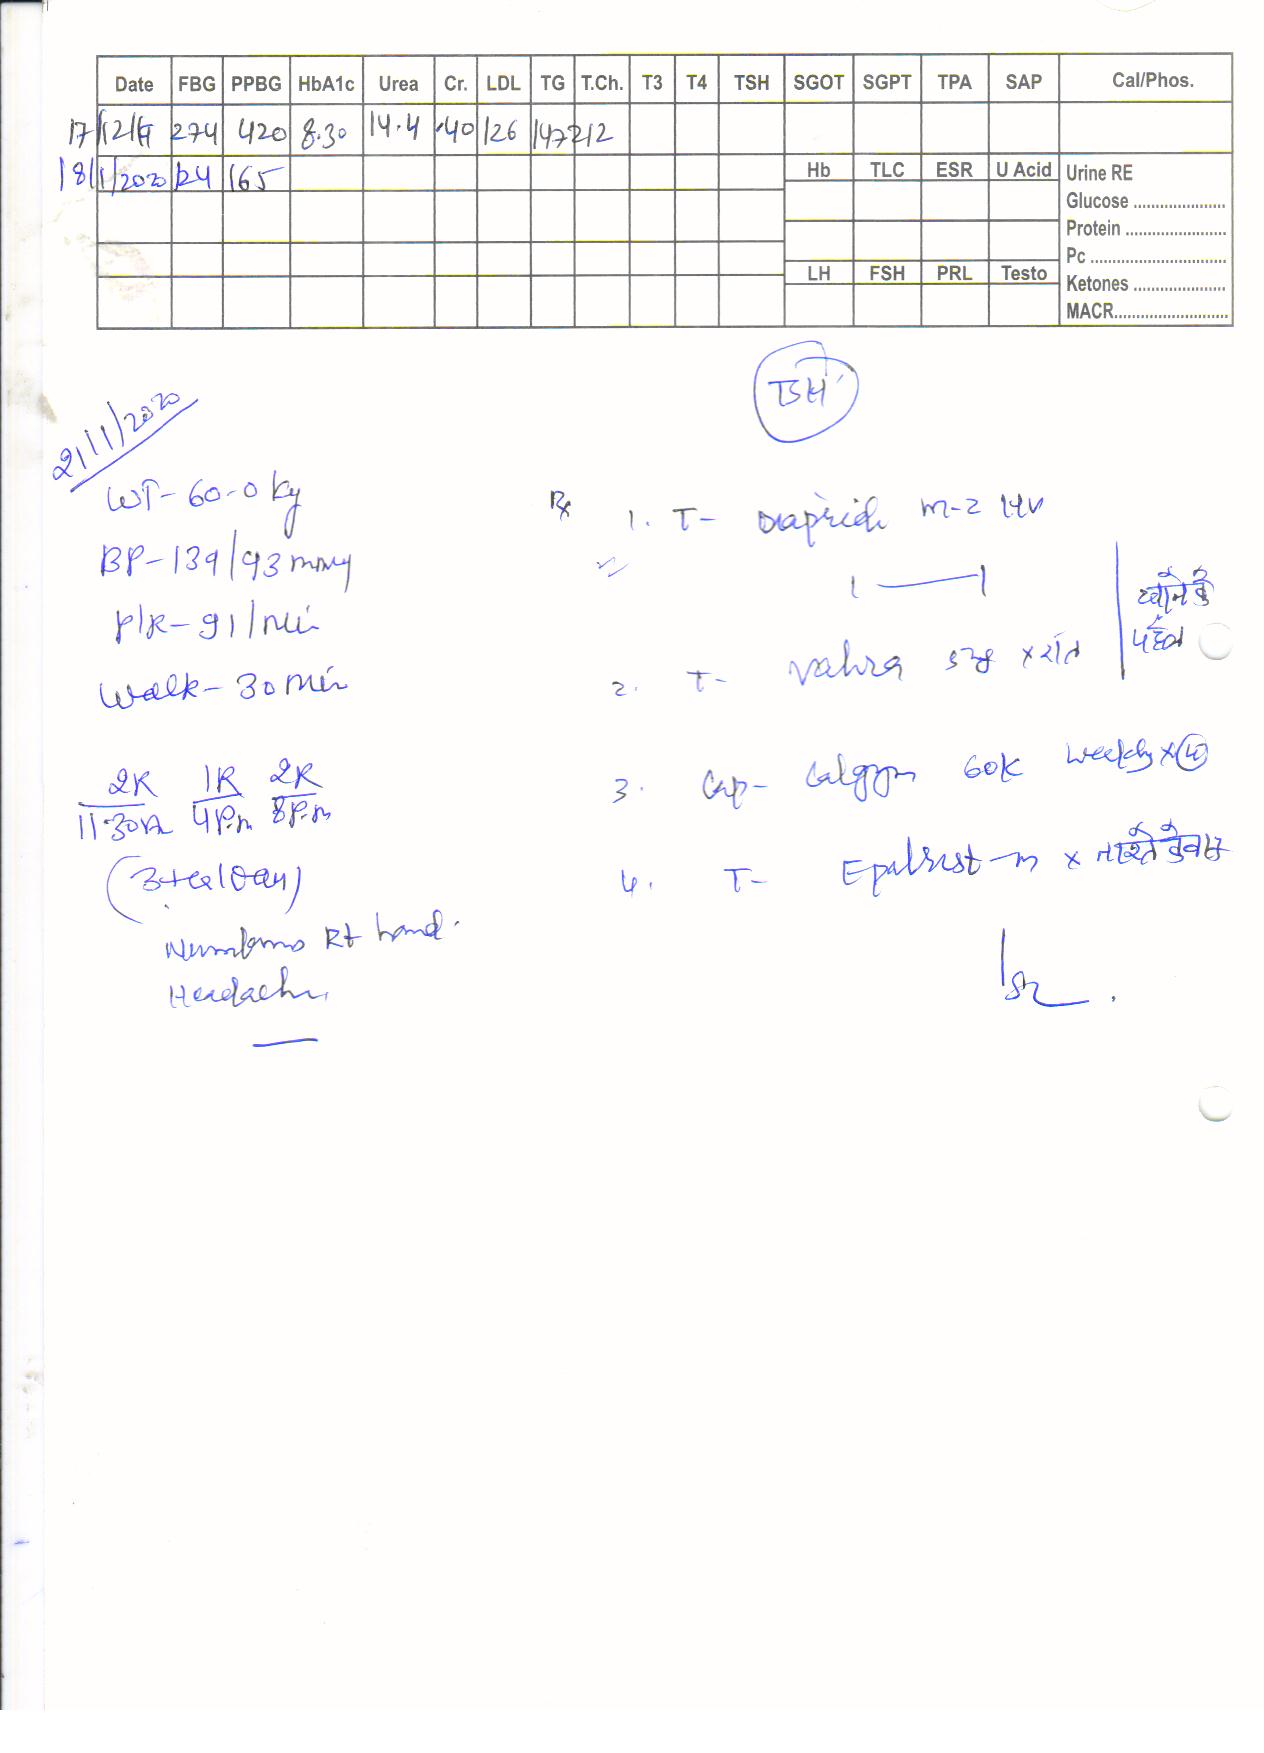 Date FBG PPBG HbA1c Urea Cr. LDL TG T.Ch. T3 T4 TSH SGOT SGPT TPA SAP Cal/Phos.
17/12/19 274 420 8.30 14.4 .40 126 147 212
18/1/2020 124 165
Hb TLC ESR U Acid Urine RE
Glucose .....................
Protein .......................
Pc ...............................
LH FSH PRL Testo Ketones .....................
MACR..........................
TSH
21/1/2020
WT- 60.0 kg
BP- 139/93 mmHg
P/R- 91/Min
Walk- 30 Min
2R 1R 2R
11.30 4P.m 8P.m
(3 tea/Day)
Numbness Rt hand.
Headache
Rx 1. T- M-2
1 — 1
खाने के
पहले
2. T- x रात
3. Cap- 60K Weekly x 4
4. T- Epalrest-M x नाश्ते के बाद